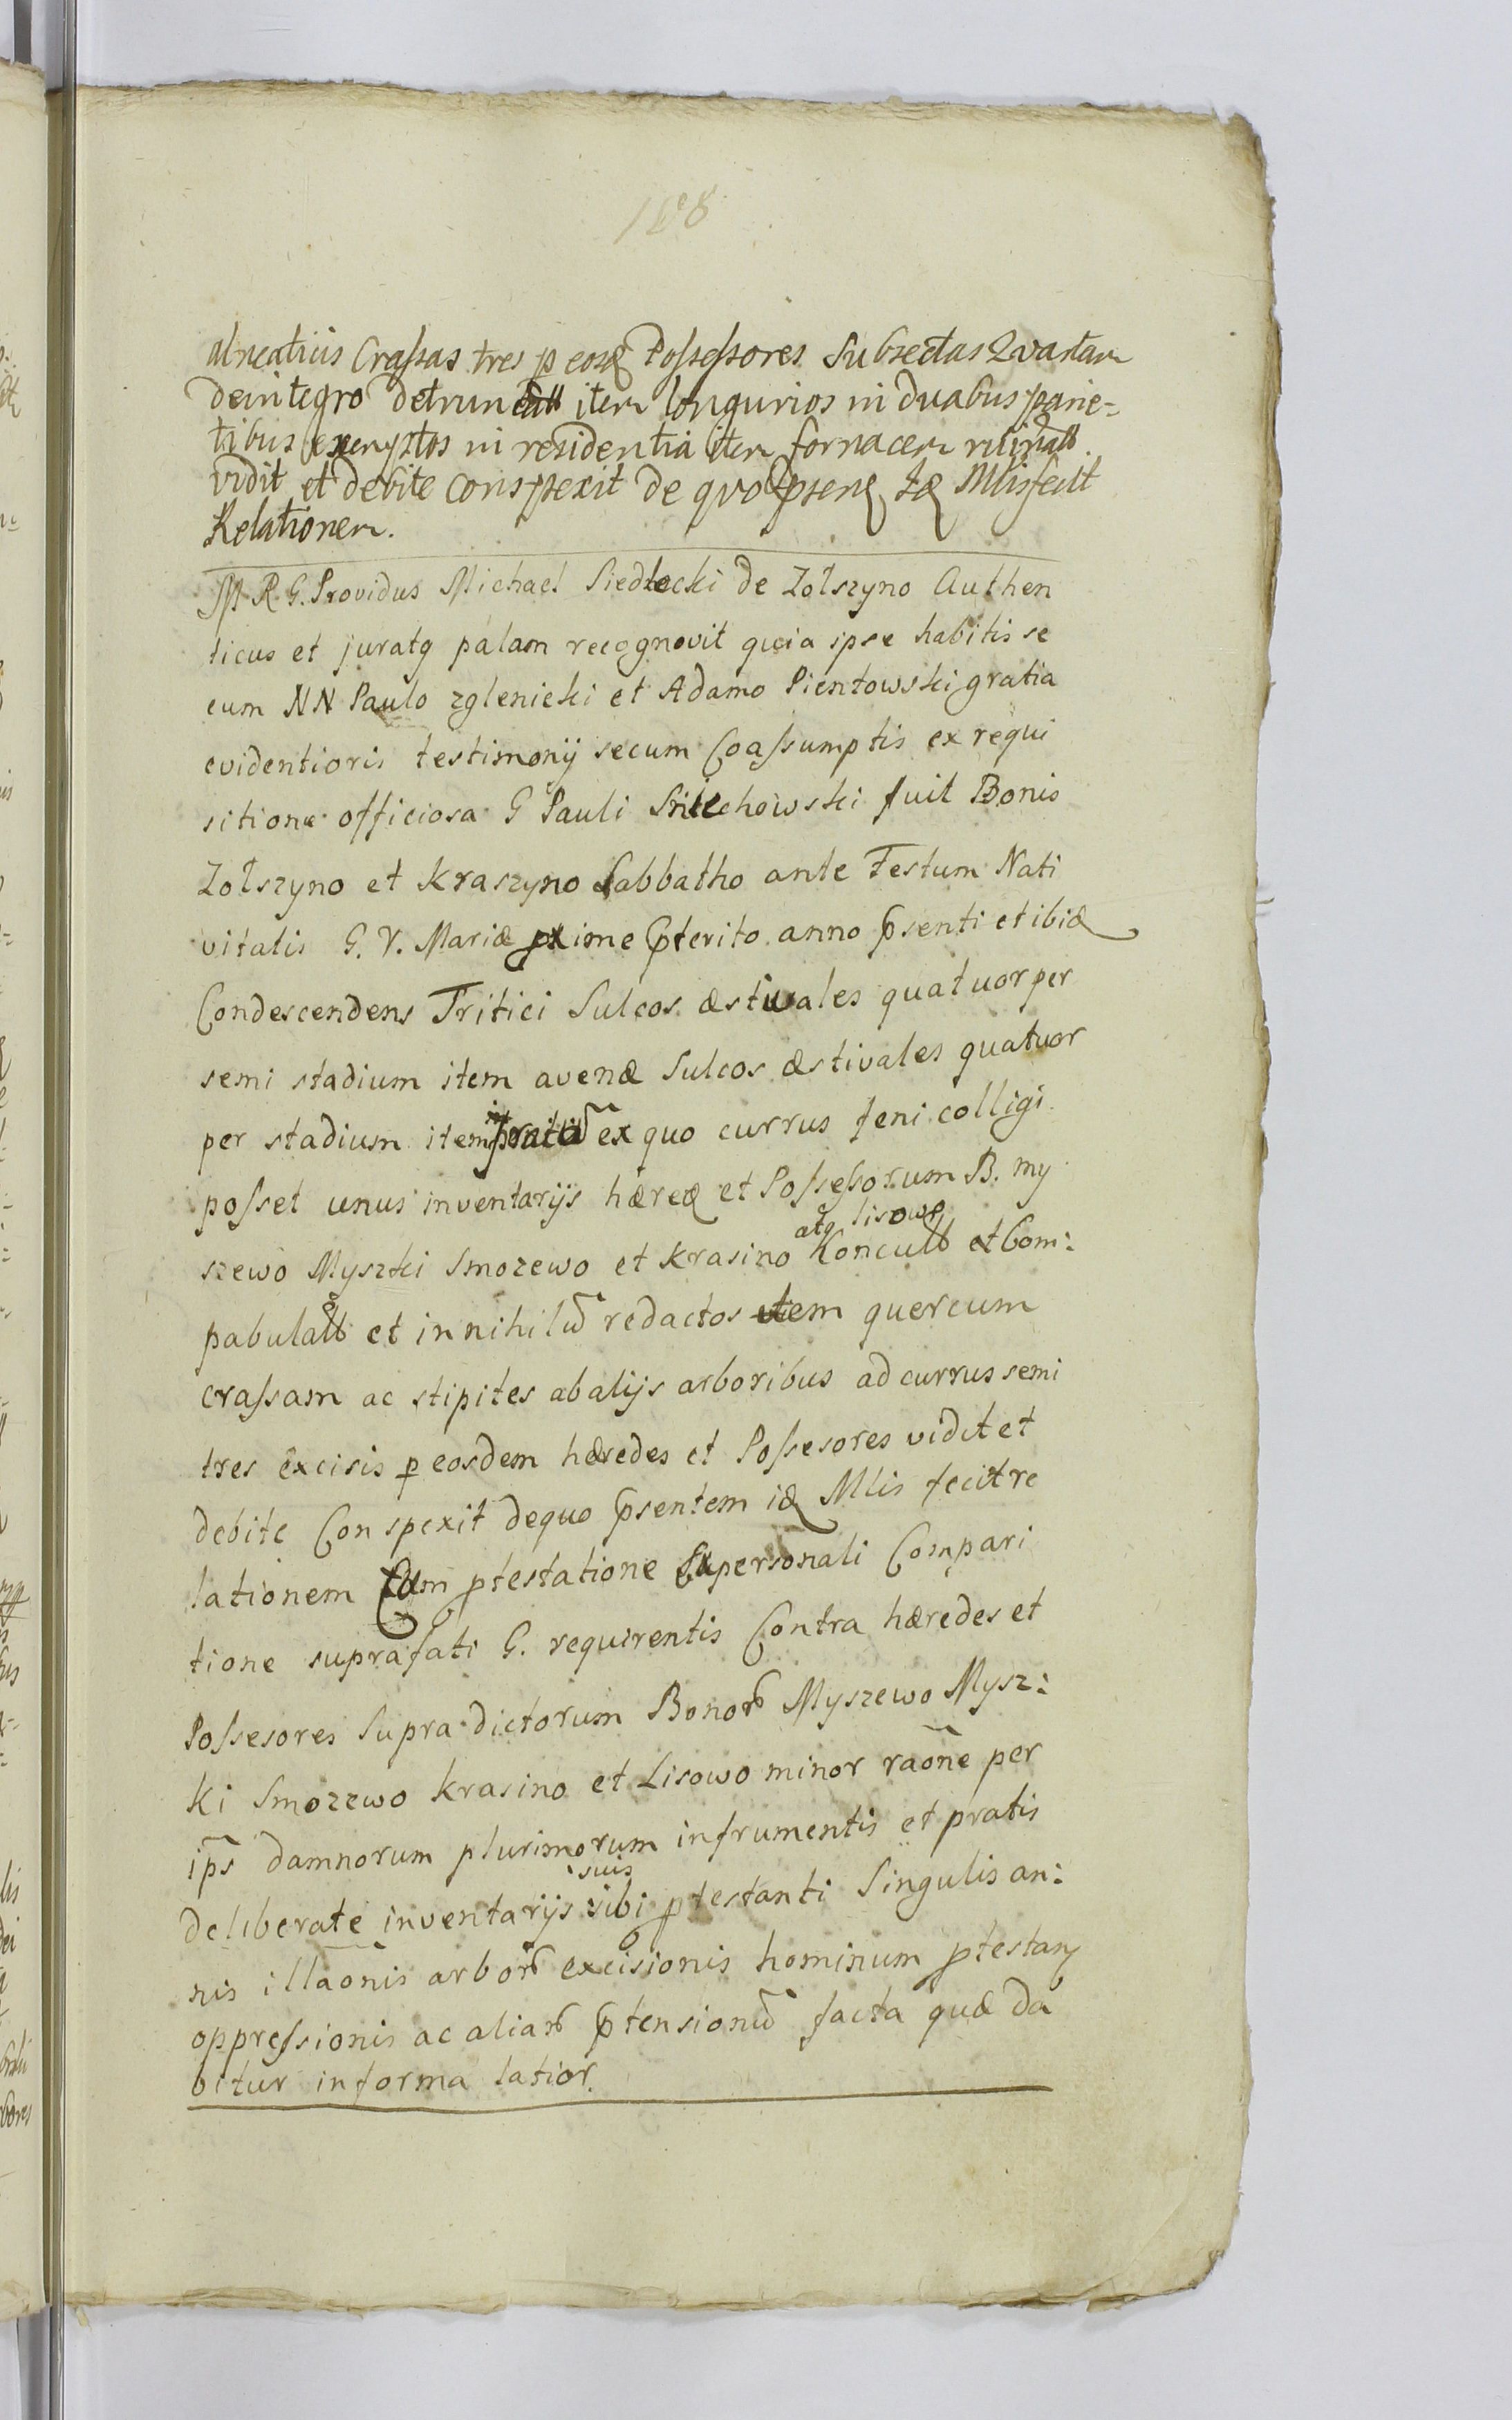 188
alneatius Crassas tres p eosq Possessores Subsectas Quartam
deintegro detruncatt item longurios in duabus parie-
tibus exemptos in residentia item fornacem ruinatt
vidit et debite conspexit de quo psenq Iq Mlis fecit
Relationem.
M R G. Providus Michael Siedlecki de Zolszyno Authen
ticus et juratq palam recognovit quia ipse habitis se
cum NN Paulo zglenicki et Adamo Pientowski gratia
evidentioris testimonij secum Coassumptis ex requi
sitione officiosa G Pauli Smlechowski fuit Bonis
Zolszyno et Kraszyno Sabbatho ante Festum Nati
vitatis G. V. Mariæ pxime pterito anno psenti et ibiq
Condescendens Tritici Sulcos æstivales quatuor per
semi stadium item avenæ Sulcos æstivales quatuor
per stadium item pratū ex quo currus feni colligi
posset unus inventarijs hæreq et Possessorum B. my
atq lisowo
szewo Myszki Smozewo et Krasino Concultt et Com:
pabulatt et in nihilū redactos item quercum
crassam ac stipites ab alijs arboribus ad currus semi
tres excisis p eosdem hæredes et Possesores vidit et
debite Conspexit dequo psentem iq Mlis fecit re
lationem Cum ptestatione personali Compari
tione suprafati G. requirentis Contra hæredes et
Possesores Supra dictorum Bonor Myszewo Mysz:
ki Smozewo Krasino et Lisowo minor raōne per
ips damnorum plurimorum infrumentis et pratis
suis
deliberate inventarijs sibi ptestanti Singulis an:
nis illaōnis arbor excisionis hominum ptestanq
oppressionis ac aliar ptensionū facta quæ da
bitur informa latior.